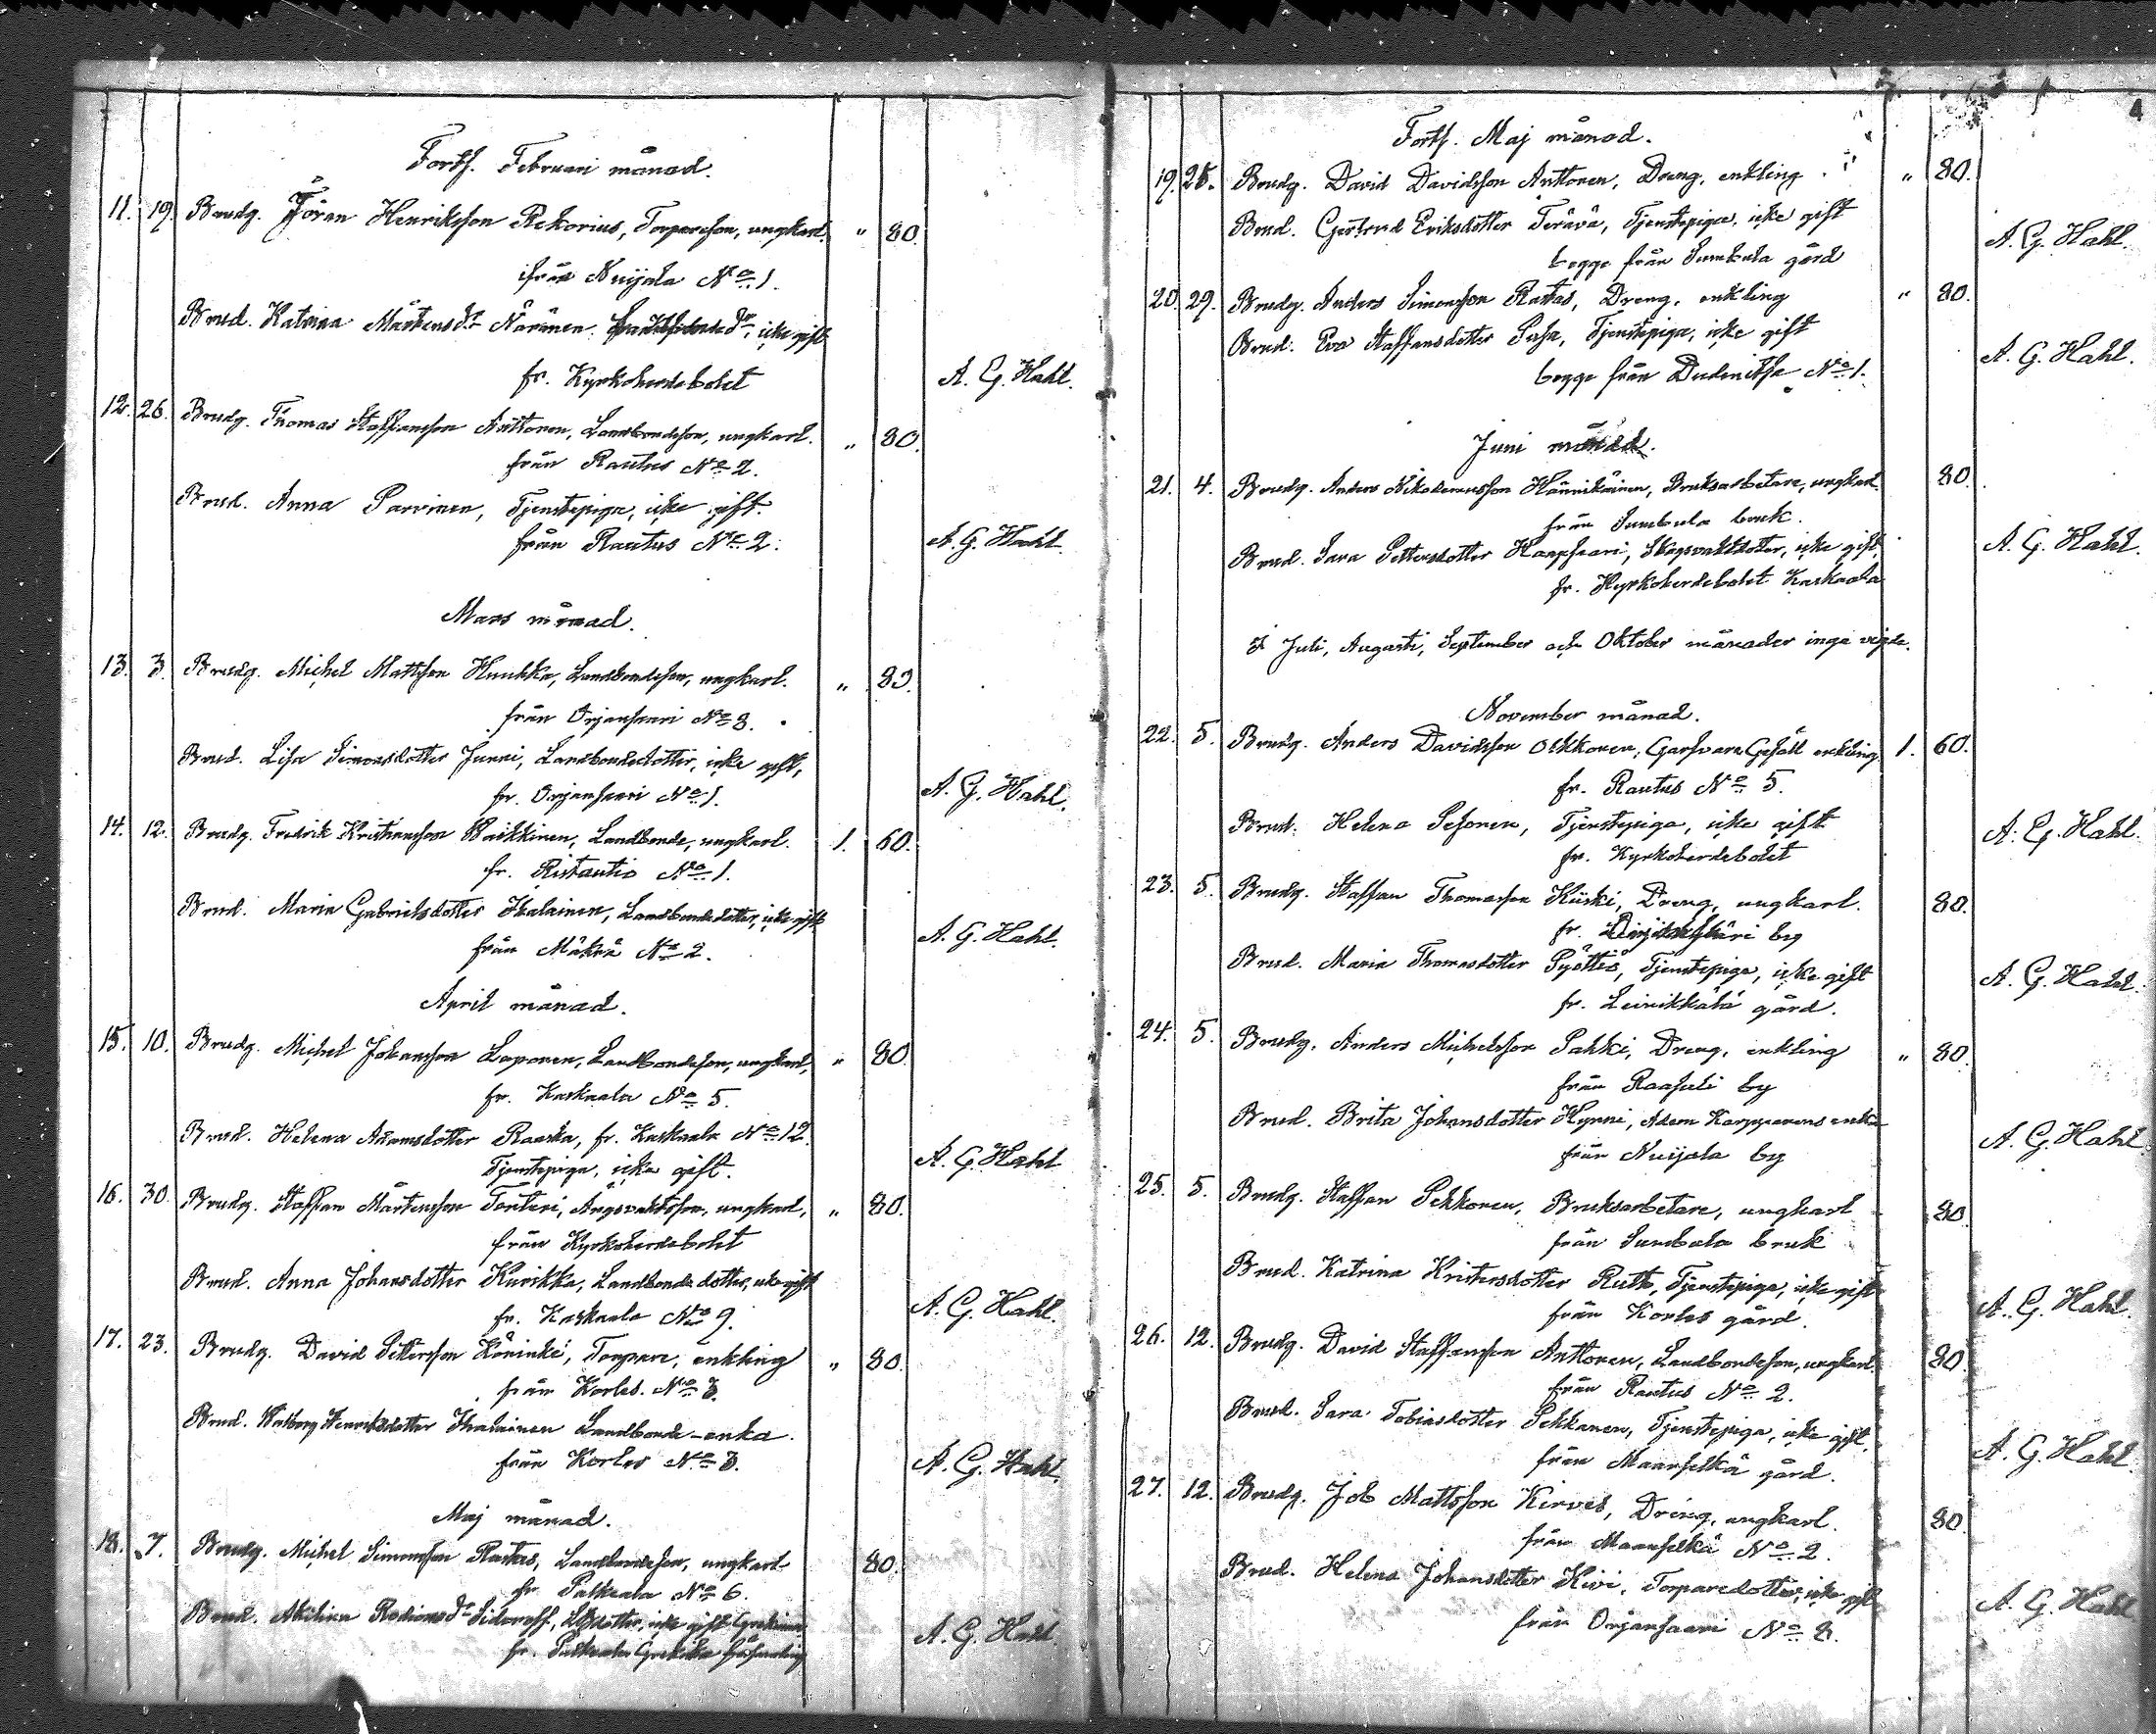 Forts. Februari månad.
11. 19. Brudg. Jöran Henriksson Rekorius, Torpareson, ungkarl. " 80.
ifrån Nuijala No 1.
Brud. Katrina Mårtensdr Närinen, icke gift
fr. Kyrkoherdebolet A. G. Hahl.
12. 26. Brudg. Thomas Staffansson Anttonen, Landbondeson, ungkarl. " 80.
från Rautus No 2.
Brud. Anna Parvinen, Tjenstepiga, icke gift.
från Rautus No 2. A. G. Hahl
Mars månad.
13. 3. Brudg. Michel Mattsson Huuhka, Landbondeson, ungkarl. " 80.
från Orjansaari No 8.
Brud. Lisa Simonsdotter Junni, Landbondedotter, icke gift,
fr. Orjansaari No 1. A. G. Hahl.
14. 12. Brudg. Fredrik Kristiansson Waikkinen, Landbonde, ungkarl. 1. 60.
fr. Ristautio No 1.
Brud. Maria Gabrielsdotter Ihalainen, Landbondedotter, icke gift
från Mäkrä No 2. A. G. Hahl.
April månad.
15. 10. Brudg. Michel Johansson Loponen, Landbondeson, ungkarl, " 80.
fr. Kaskaala No 5.
Brud. Helena Adamsdotter Raaska, fr. Kaskaala No 12.
Tjenstepiga, icke gift. A. G. Hahl
16. 30. Brudg. Staffan Mårtensson Tontteri, Ängsvaktsson, ungkarl, " 80.
från Kyrkoherdebolet
Brud. Anna Johansdotter Kurikka, Landbondedotter, icke gift
fr. Kaskaala No 9. A. G. Hahl.
17. 23. Brudg. David Pettersson Köninki, Torpare, enkling " 80.
från Korles. No 3.
Brud. Walborg Henriksdotter Ihalainen Landbonde-enka.
från Korles No 3. A. G. Hahl.
Maj månad.
18. 7. Brudg. Michel Simonsson Rastas, Landbondeson, ungkarl 80.
fr. Palkeala No 6.
Brud. Akilina Rodionsdr Sidoroff, icke gift
fr. Palkeala Grekiska församling A. G. Hahl.
Forts. Maj månad.
19. 25. Brudg. David Davidsson Anttonen, Dreng, enkling " 80.
Brud. Gertrud Eriksdotter Terävä, Tjenstepiga, icke gift
begge från Sumbula gård A. G. Hahl.
20. 29. Brudg. Anders Simonsson Rastas, Dreng, enkling " 80.
Brud. Eva Staffansdotter Susa, Tjenstepiga, icke gift
begge från Dudenitsa No 1. A. G. Hahl.
Juni månad.
21. 4. Brudg. Anders Nikodemusson Hännikäinen, Bruksarbetare, ungkarl. 80.
från Sumbula bruk.
Brud. Sara Pettersdotter Haapsaari, Skogsvaktdotter, icke gift,
fr. Kyrkoherdebolet Kaskaala A. G. Hahl.
I Juli, Augusti, September och Oktober månader inga vigde.
November månad.
22. 5. Brudg. Anders Davidsson Olkkonen, Garfvare Gesäll enkling. 1. 60.
fr. Rautus No 5.
Brud. Helena Pesonen, Tjenstepiga, icke gift
fr. Kyrkoherdebolet A. G. Hahl.
23. 5. Brudg. Staffan Thomasson Kiiski, Dreng, ungkarl. 80.
by
Brud. Maria Thomasdotter Pyöttiö, Tjenstepiga, icke gift
fr. Leinikkälä gård. A. G. Hahl.
24. 5. Brudg. Anders Michelsson Pahki, Dreng, enkling " 80.
från Raasuli by
Brud. Brita Johansdotter Hynni, Adam Karppanens enka
från Nuijala by A. G. Hahl
25. 5. Brudg. Staffan Pekkonen, Bruksarbetare, ungkarl 80.
från Sumbula bruk
Brud. Katrina Kristersdotter Ruth, Tjenstepiga, icke gift
från Korles gård. A. G. Hahl.
26. 12. Brudg. David Staffansson Anttonen, Landbondeson, ungkarl. 80.
från Rautus No 2.
Brud. Sara Tobiasdotter Pekkanen, Tjenstepiga, icke gift.
från Maanselkä gård. A. G. Hahl.
27. 12. Brudg. Job Mattsson Kirves, Dreng, ungkarl. 80.
från Maanselkä No 2.
Brud. Helena Johansdotter Kivi, Torparedotter, icke gift
från Orjansaari No 8. A. G. Hahl